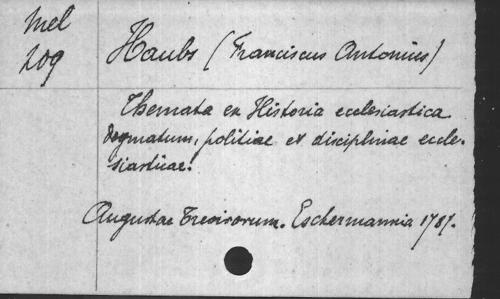 Mel
209
Haubs (Franciscus Antonius)
Themata ex Historia ecclesiastica
dogmatum, politiae et disciplinae eccle-
siasticae.
Augustae Trevirorum. Eschermannia 1787.